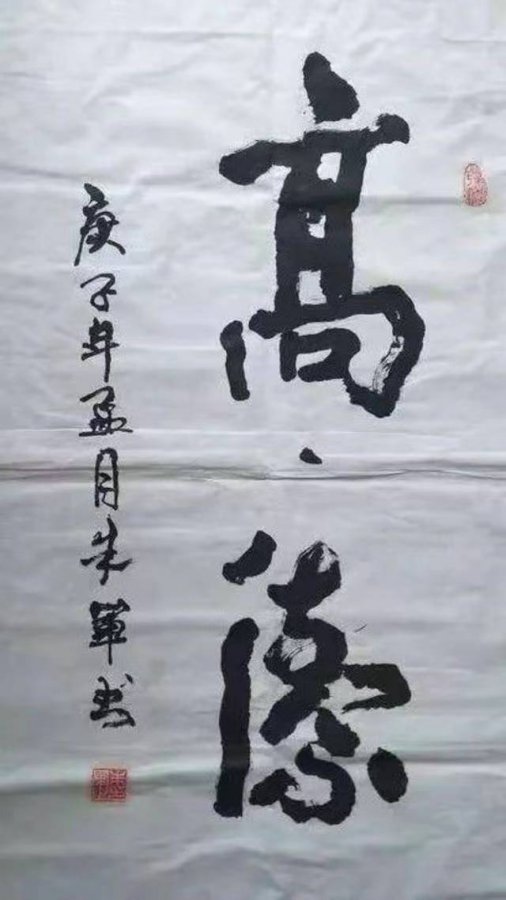 高
庚子年孟月朱軍书